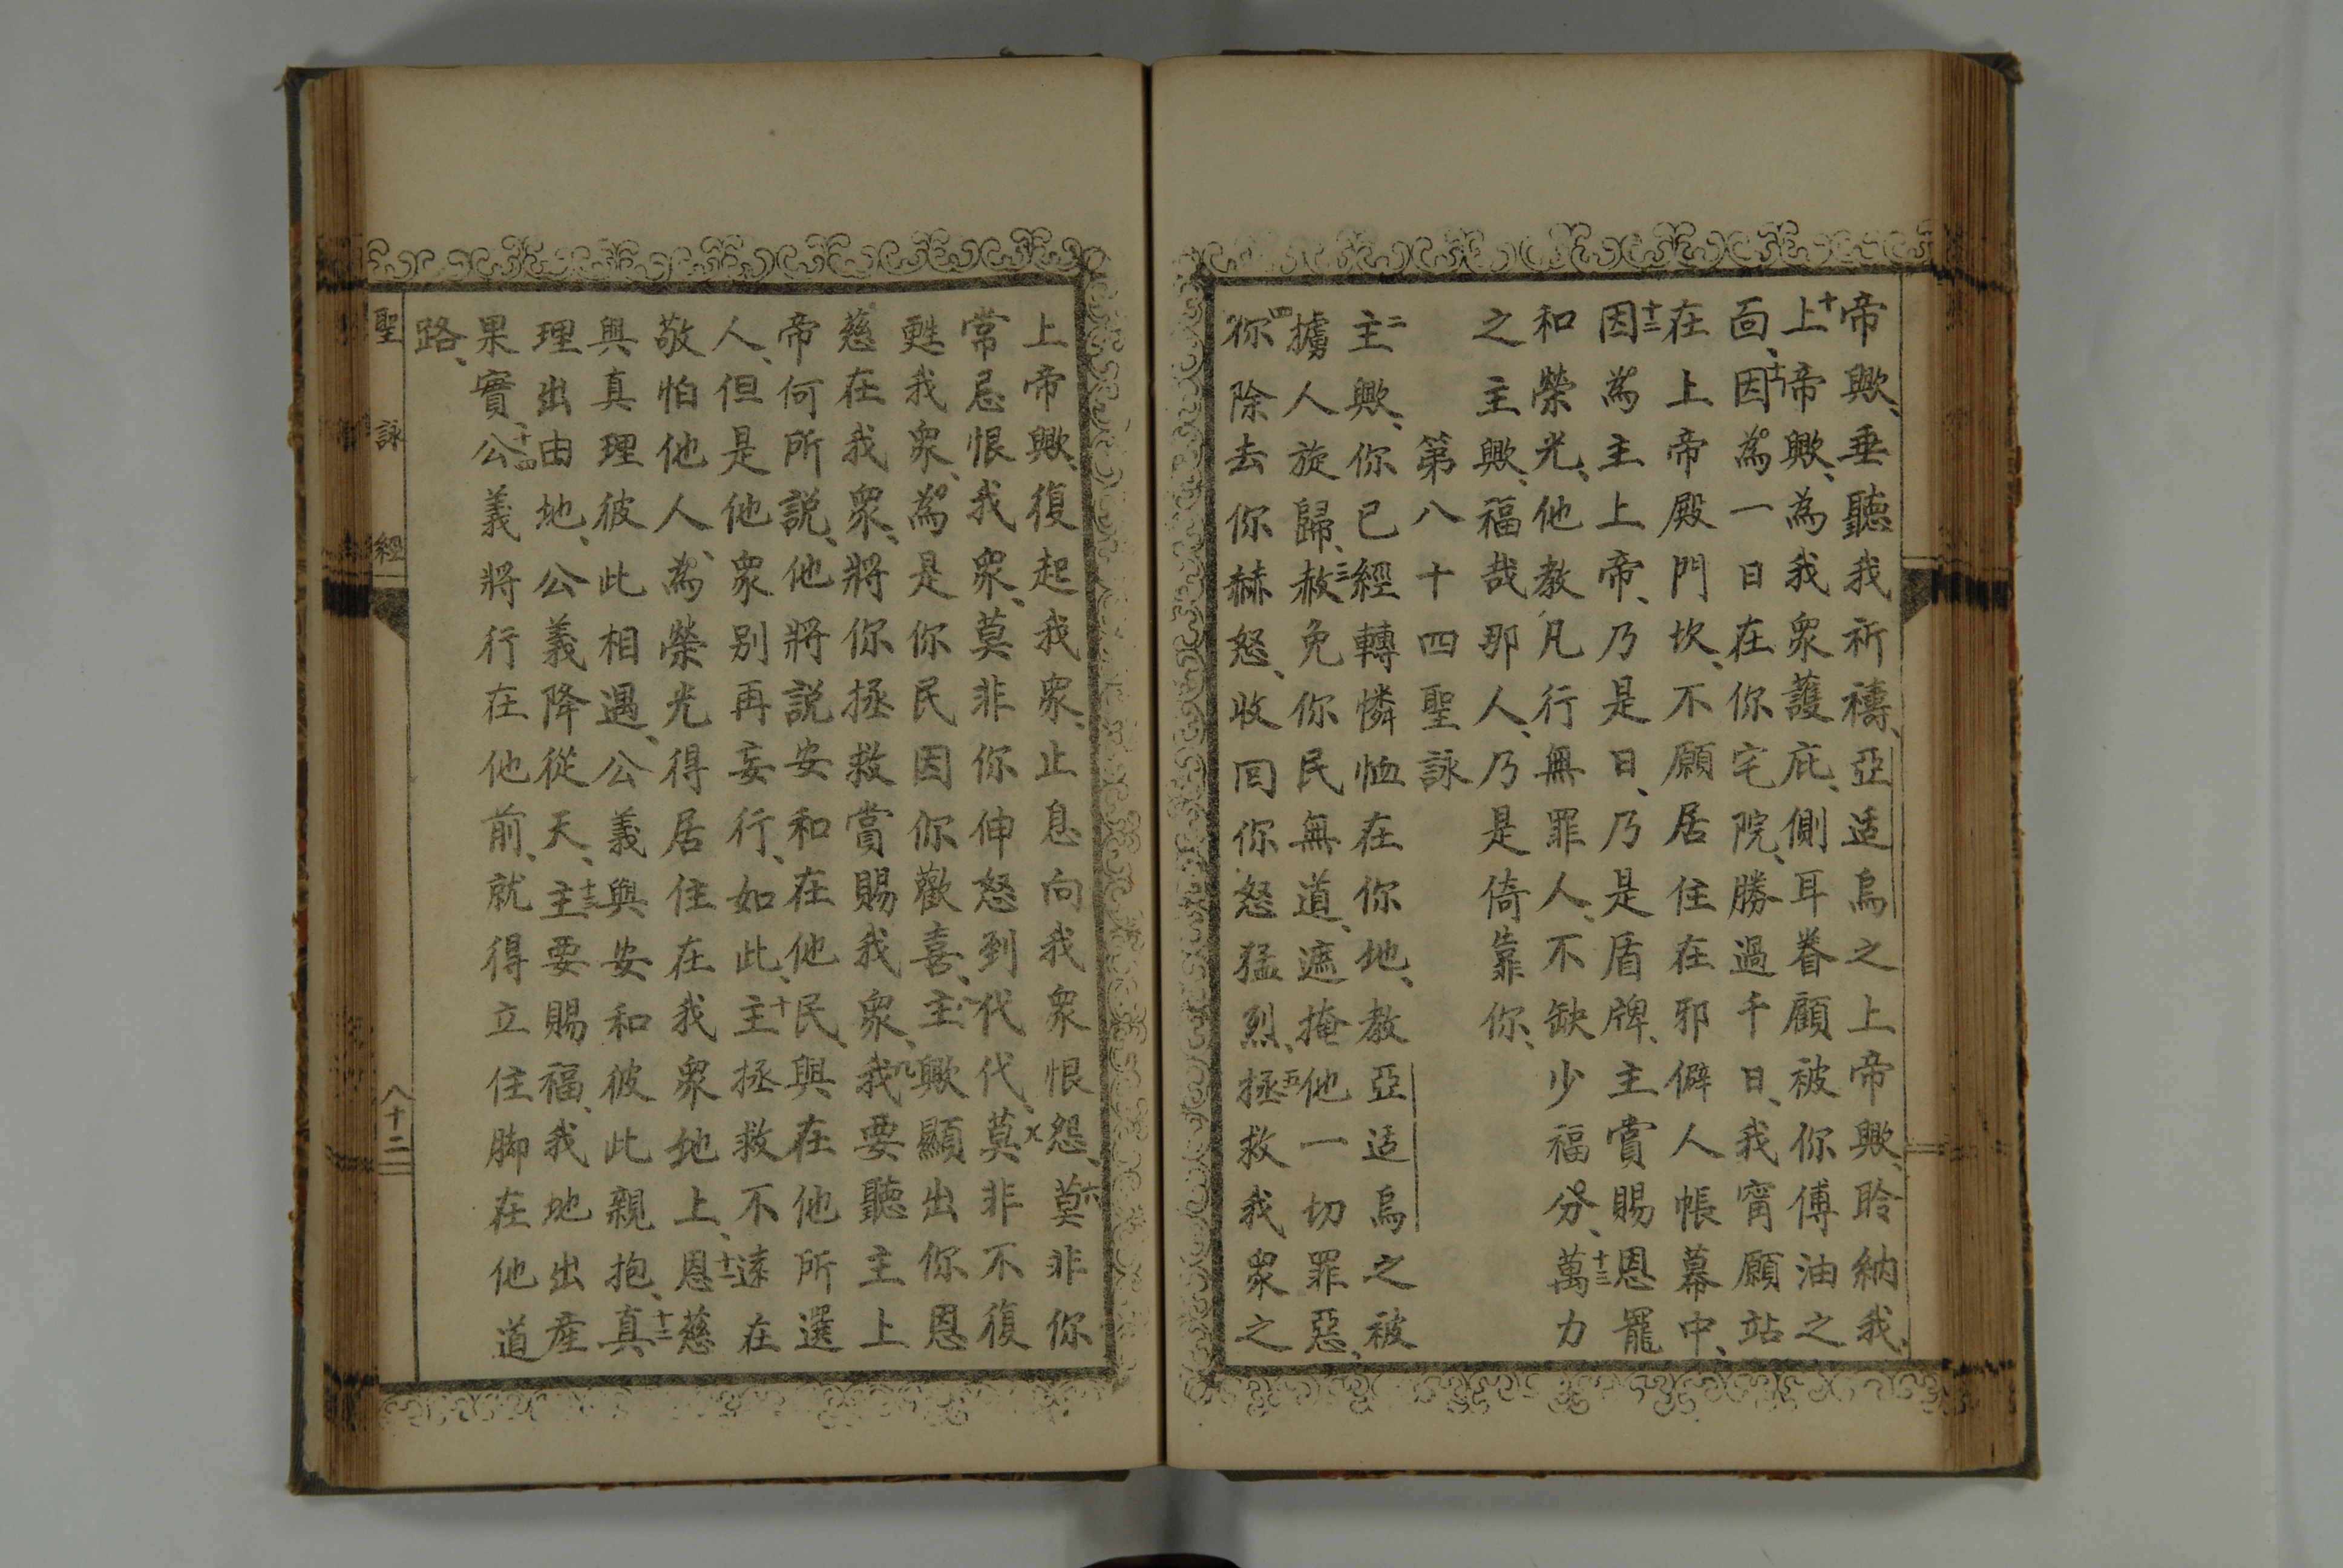 帝歟、垂聽我祈禱、亞适烏之上帝歟、聆納我、
十上帝歟、為我衆護庇、側耳眷顧被你傅油之
面、十一因為一日在你宅院、勝過千日、我甯願站
在上帝殿門坎、不願居住在邪僻人帳幕中、
十二因為主上帝、乃是日、乃是盾牌、主賞賜恩寵
和榮光、他教凡行無罪人、不缺少福分、十三萬力
之主歟、福哉那人、乃是倚靠你、
第八十四聖詠
二主歟、你已經轉憐恤在你地、教亞适烏之被
擄人旋歸、三赦免你民無道、遮掩他一切罪惡、
四你除去你赫怒、收回你怒猛烈、五拯救我衆之
上帝歟、復起我衆、止息向我衆恨怨、六莫非你
常忌恨我衆、莫非你伸怒到代代、七莫非不復
甦我衆、為是你民因你歡喜、八主歟顯出你恩
慈在我衆、將你拯救賞賜我衆、九我要聽主上
帝何所説、他將説安和在他民、與在他所選
人、但是他衆别再妄行、如此、十主拯救不遠在
敬怕他人、為榮光得居住在我衆地上、十一恩慈
與真理彼此相遇、公義與安和彼此親抱、十二真
理出由地、公義降從天、十三主要賜福、我地出産
果實、十四公義將行在他前、就得立住脚在他道
路、
聖詠經
八十二